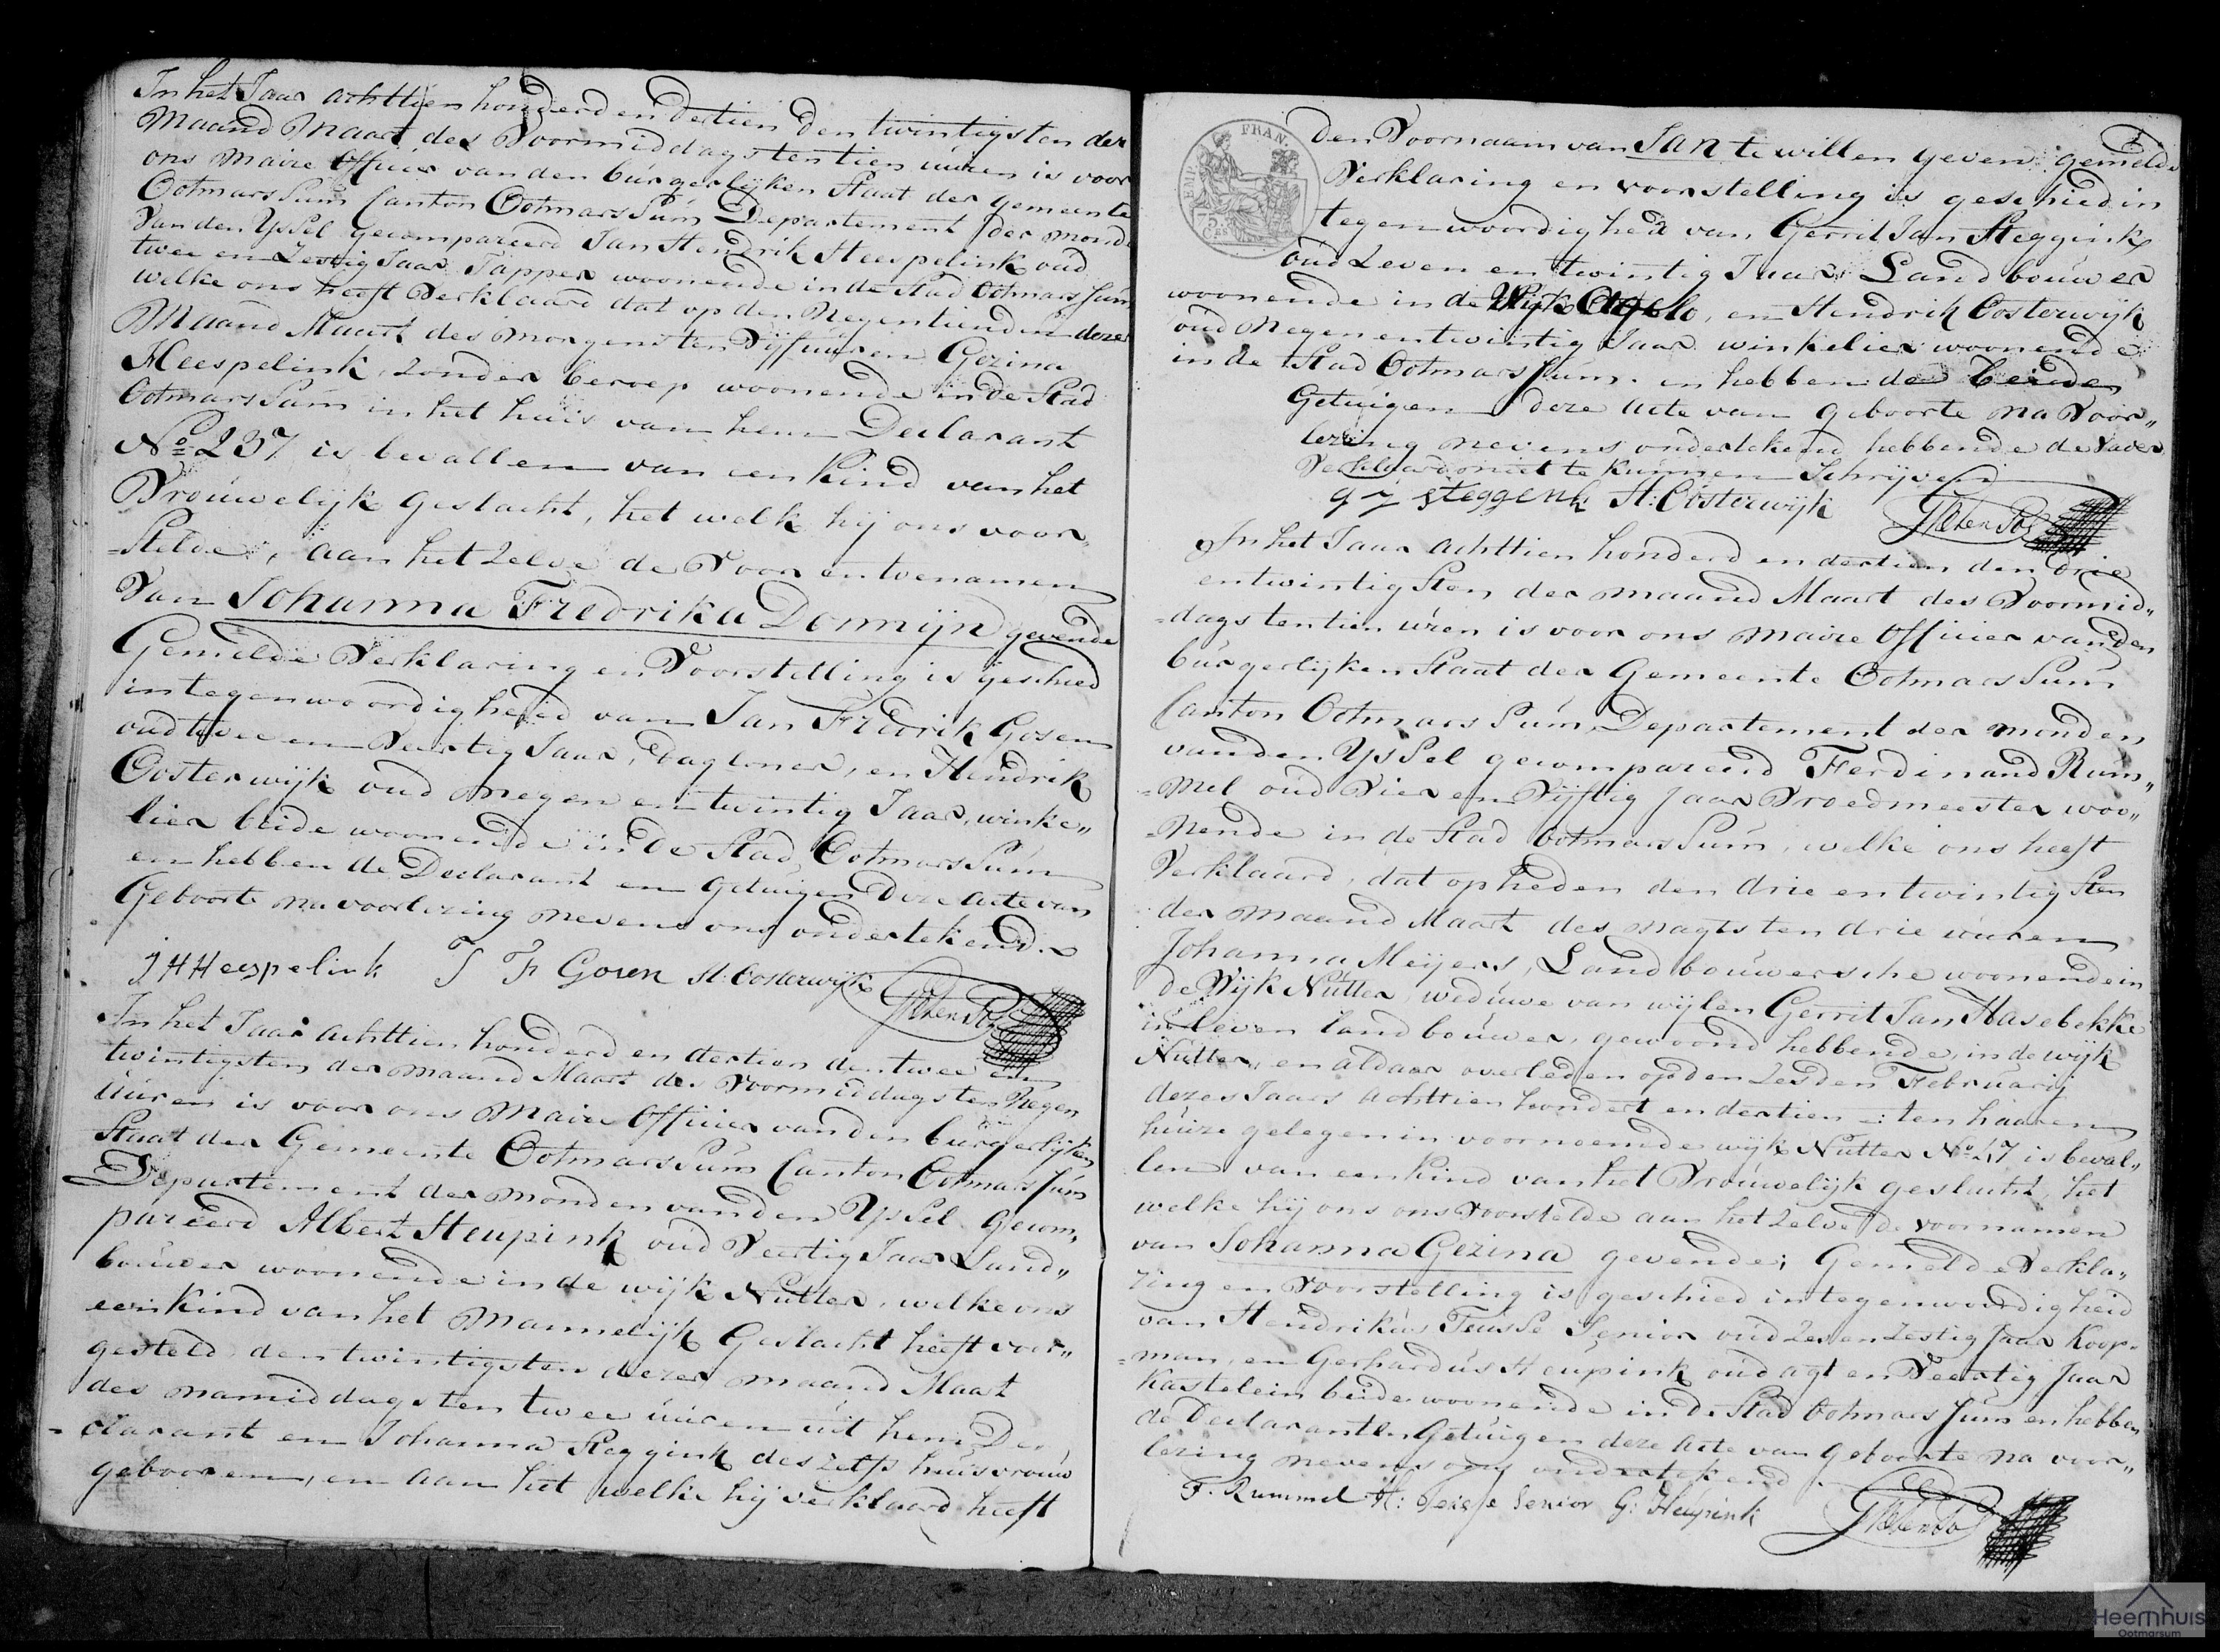 In het Jaar achttien honderd en dertien den twintigsten der
Maand Maart des Voormiddags ten tien uuren is voor
ons Maire Officier van den burgerlijken Staat der Gemeente
OotmarsSum Canton OotmarsSum Departement der monden
Van den YsSel gecompareerd Jan Hendrik Heespelink oud
twee en Zestig Jaar Tapper woonende in de Stad OotmarsSum
welke ons heeft Verklaard dat op den Negentienden dezer
Maand Maart des morgens ten Vijf uuren Gezina
Heespelink, zonder beroep woonende in de Stad
OotmarsSum in het huis van hem Declarant
No 237 is bevallen van een Kind van het
Vrouwelijk Geslacht, het welk hij ons voor„
=Stelde, aan het zelve de Voor en toenamen
Van Johanna Fredrika Donnijn gevende
Gemelde Verklaring en Voorstelling is geschied
in tegenwoordigheid van Jan Fredrik Gosen
oud twee en Veertig Jaar, Dagloner, en Hendrik
Oosterwijk oud negen en twintig Jaar, winke„
lier beide woonende in de Stad OotmarsSum
en hebben de Declarant en Getuigen deze acte van
Geboorte na voorlezing nevens ons ondertekend.
J H Heespelink J F Gosen H: Oosterwijk
In het Jaar achttien honderd en dertien den twee en
twintigsten der maand Maart des Voormiddags ten Negen
uuren is voor ons Maire Officier van den burgerlijken
Staat der Gemeente OotmarsSum Canton OotmarsSum
Departement der monden van den YsSel gecom„
pareerd Albert Heupink oud Veertig Jaar Land„
bouwer woonende in de wijk Nutter, welke ons
een Kind van het Mannelijk Geslacht heeft voor„
gesteld, den twintigsten dezer maand Maart
des namiddags ten twee uuren uit hem De„
=clarant en Johanna Steggink deszelfs huisvrouw
gebooren, en aan het welke hij verklaard heeft
EMP. FRAN.
75
Den Voornaam van Jan te willen geven gemelde
Verklaring en voorstelling is geschied in
tegenwoordigheid van Gerrit Jan Steggink
oud Zeven en twintig Jaar Landbouwer
woonende in de Wijk Agelo, en Hendrik Oosterwijk
oud Negen en twintig Jaar winkelier woonende
in de Stad OotmarsSum. en hebben de beiden
Getuigen deze acte van geboorte na Voor„
lezing nevens ondertekend hebbende de Vader
Verklaard niet te kunnen Schrijven
g j steggenk H: Oosterwijk
In het Jaar achttien honderd en dertien den drie
en twintigSten der maand Maart des Voormid„
=dags ten tien uren is voor ons Maire Officier van den
burgerlijken Staat der Gemeente OotmarsSum
Canton OotmarsSum, Departement der monden
van den YsSel gecompareerd Ferdinand Rum„
=mel oud Vier en Vijftig Jaar Vroedmeester woo„
=nende in de Stad OotmarsSum, welke ons heeft
Verklaard, dat op heden den drie en twintigSten
der maand Maart des Nagts ten drie uuren
Johanna Meijers, Landbouwersche woonende in
de Wijk Nutter, weduwe van wijlen Gerrit Jan Hasebekke
in leven landbouwer, gewoond hebbende, in de wijk
Nutter, en aldaar overleden op den Zesden Februarij
dezes Jaars achttien hondert en dertien =: ten haaren
huize gelegen in voornoemde wijk Nutter No 47 is beval„
len van een kind van het Vrouwelijk geslacht, het
welke hij ons ons Voorstelde aan het zelve de voornamen
van Johanna Gezina gevende; Gemelde Verkla„
ring en Voorstelling is geschied in tegenwoordigheid
van Hendrikus Teusse Senior oud Zes en Zestig Jaar Koop=
=man, en Gerhardus Heupink oud agt en Veertig Jaar
Kastelein beide woonende in de Stad OotmarsSum en hebben
de Declarant en Getuigen deze acte van geboorte na voor„
lezing nevens ons ondertekend.
F. Rummel H: Senior G: Heupink
Heemhuis
Ootmarsum